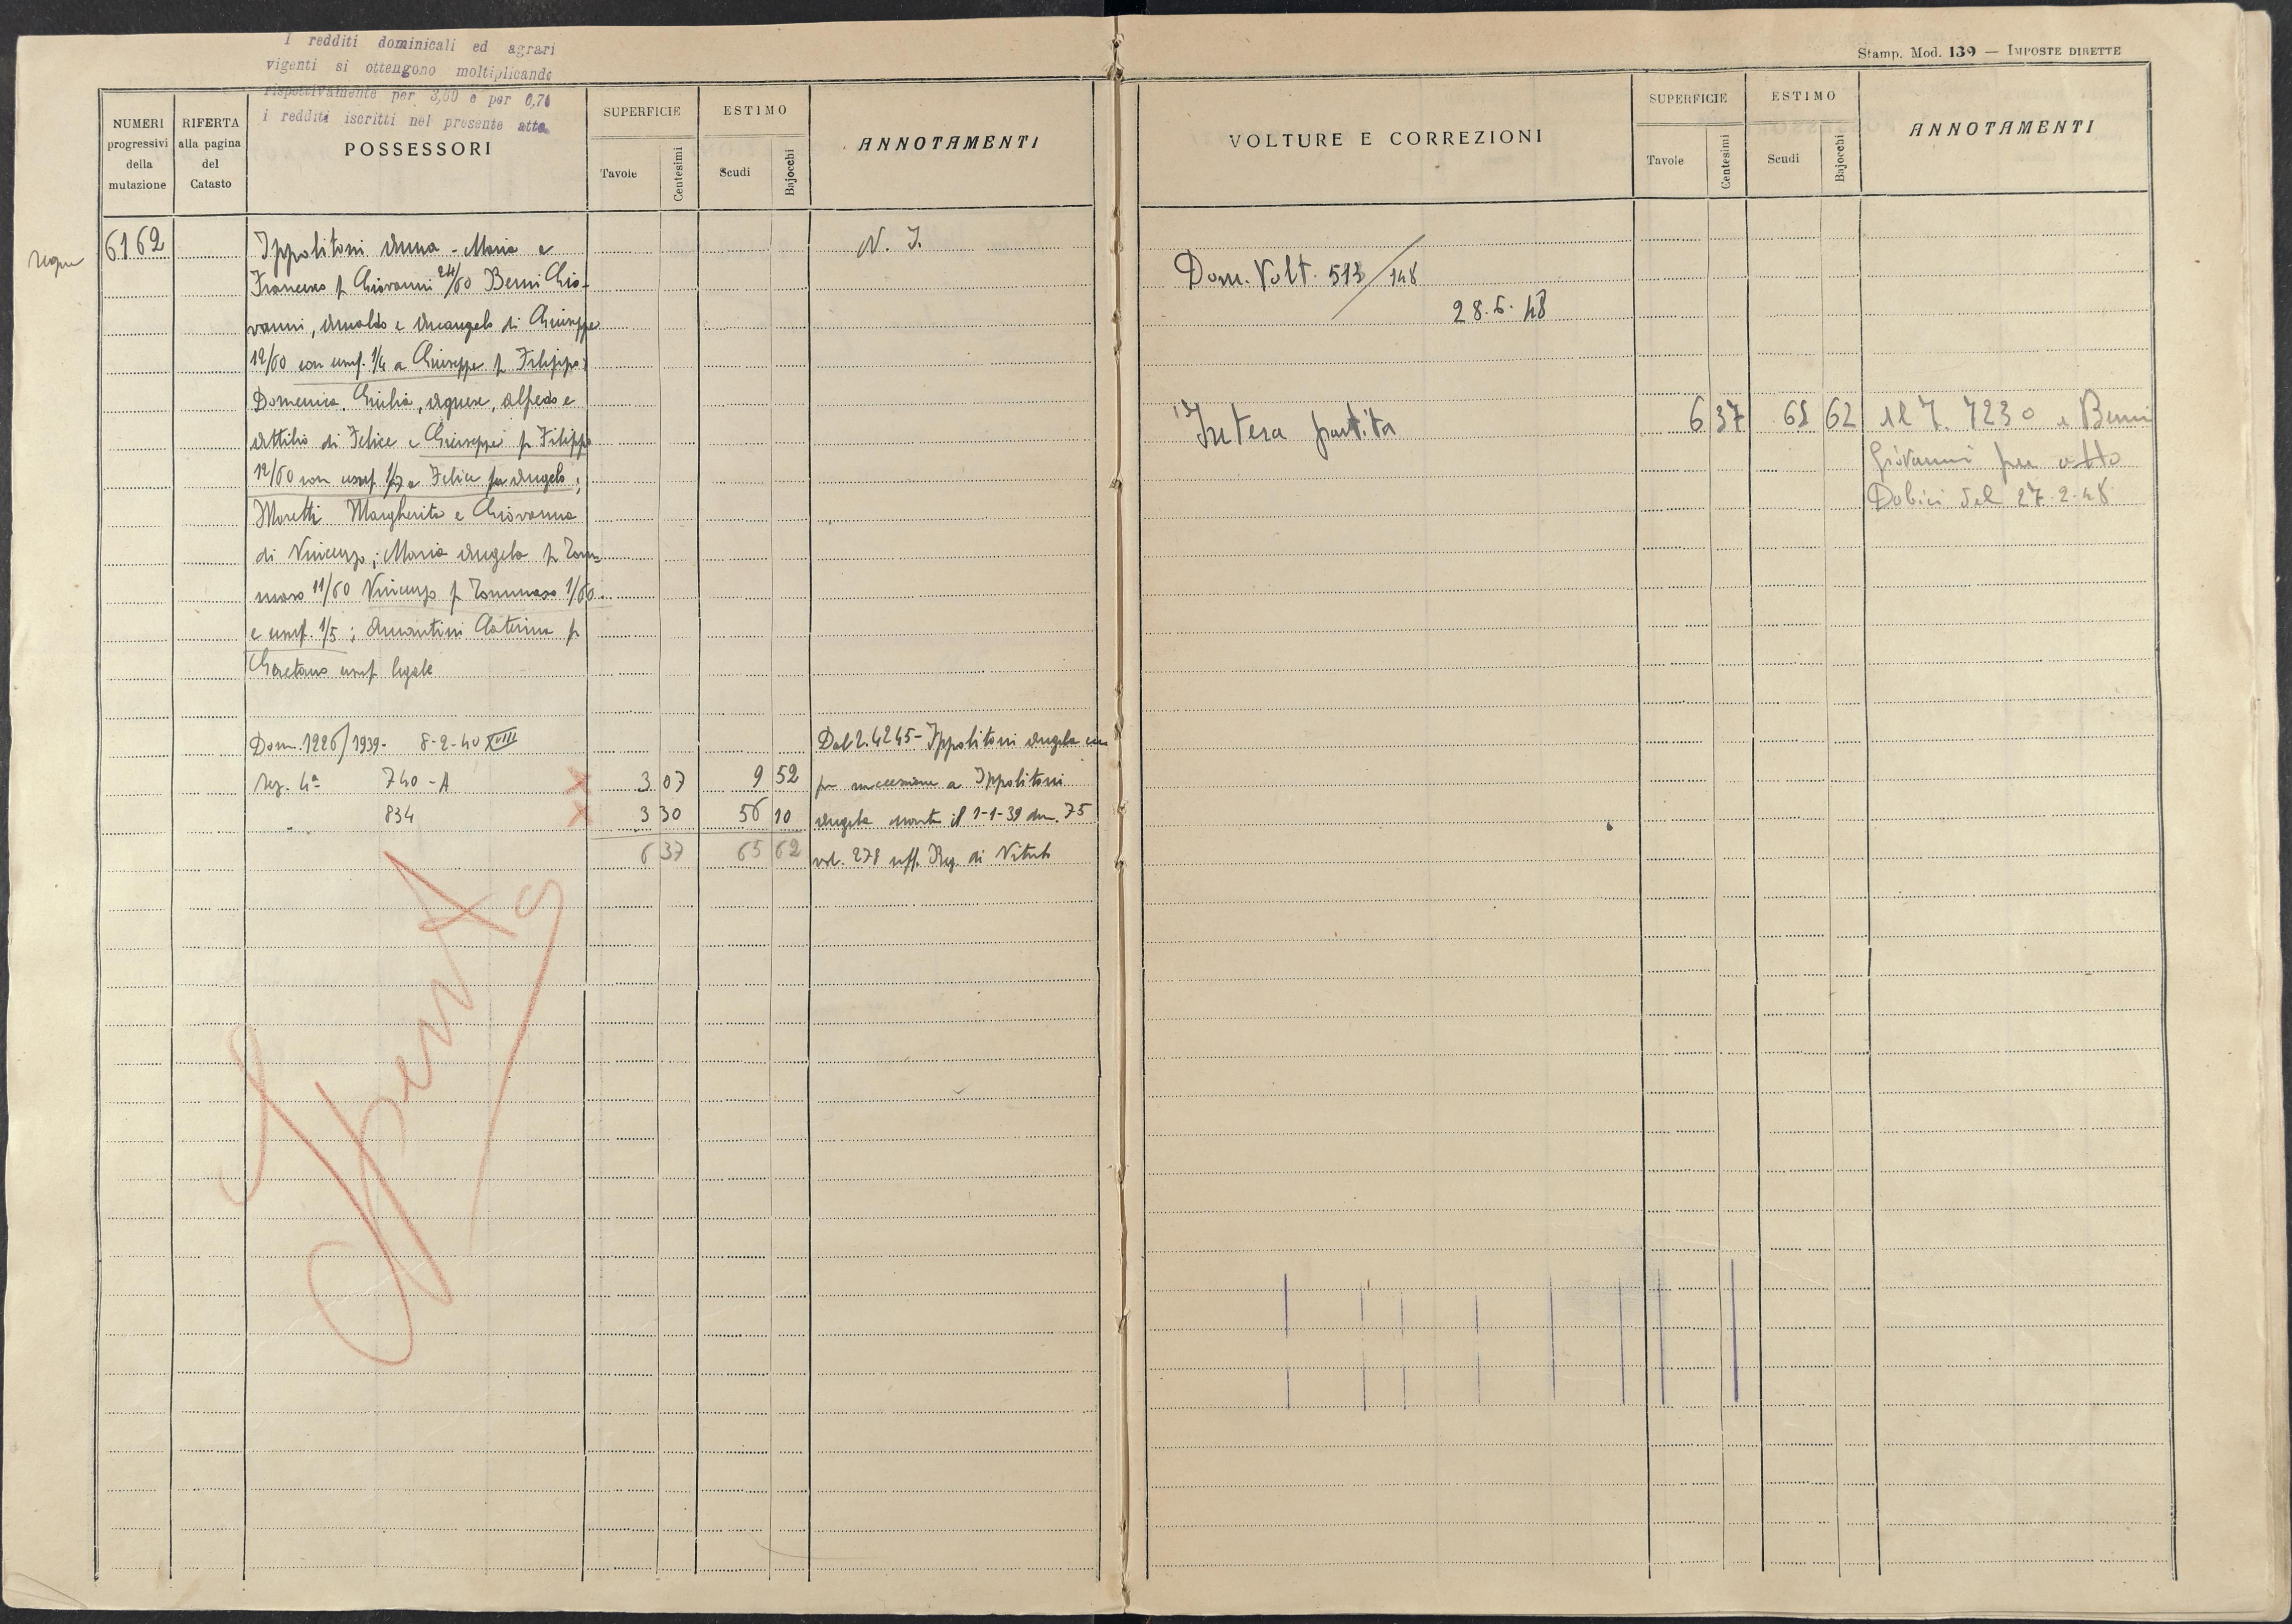 I redditi dominicali ed agrari
vigenti si ottengono moltiplicando
rispettivamente per 3,60 e per 0,76
i redditi iscritti nel presente atto.
Stamp. Mod. 139 — IMPOSTE DIRETTE
NUMERI progressivi della mutazione
RIFERTA alla pagina del Catasto
POSSESSORI
SUPERFICIE
Tavole
Centesimi
ESTIMO
Scudi
Bajocchi
ANNOTAMENTI
VOLTURE E CORREZIONI
SUPERFICIE
Tavole
Centesimi
ESTIMO
Scudi
Bajocchi
ANNOTAMENTI
6162 Ippolitoni Anna - Maria e N. I.
Francesco f Giovanni 24/60 Berni Gio-
vanni, Arnaldo e Arcangelo di Giuseppe
12/60 con usuf. 1/4 a Giuseppe f Filippo;
Domenica, Giulia, Agnese, Alfredo e
Attilio di Felice e Giuseppe f Filippo
12/60 con usuf. a Felice fu Angelo;
Moretti Margherita e Giovanna
di Vincenzo; Maria Angela f Tom-
maso 11/60 Vincenzo f Tommaso 1/60
e usuf. 1/5; Amantini Caterina f
Gaetano usuf legale
Dom. 1226/1939 - 8-2-40 XVIII Dal 2.4245 - Ippolitoni Angela
Sez. 4ª 740 - A 3 07 9 52 per successione a Ippolitoni
" 834 3 30 56 10 Angela morta il 1-1-39 den. 75
6 37 65 62 vol. 278 uff. Reg. di Viterbo
Spenta
Dom. Volt. 513/148
28.5.48
Intera partita 6 37 65 62 al 7. 7230 a Berni
Giovanni per atto
Dobici del 27.2.48